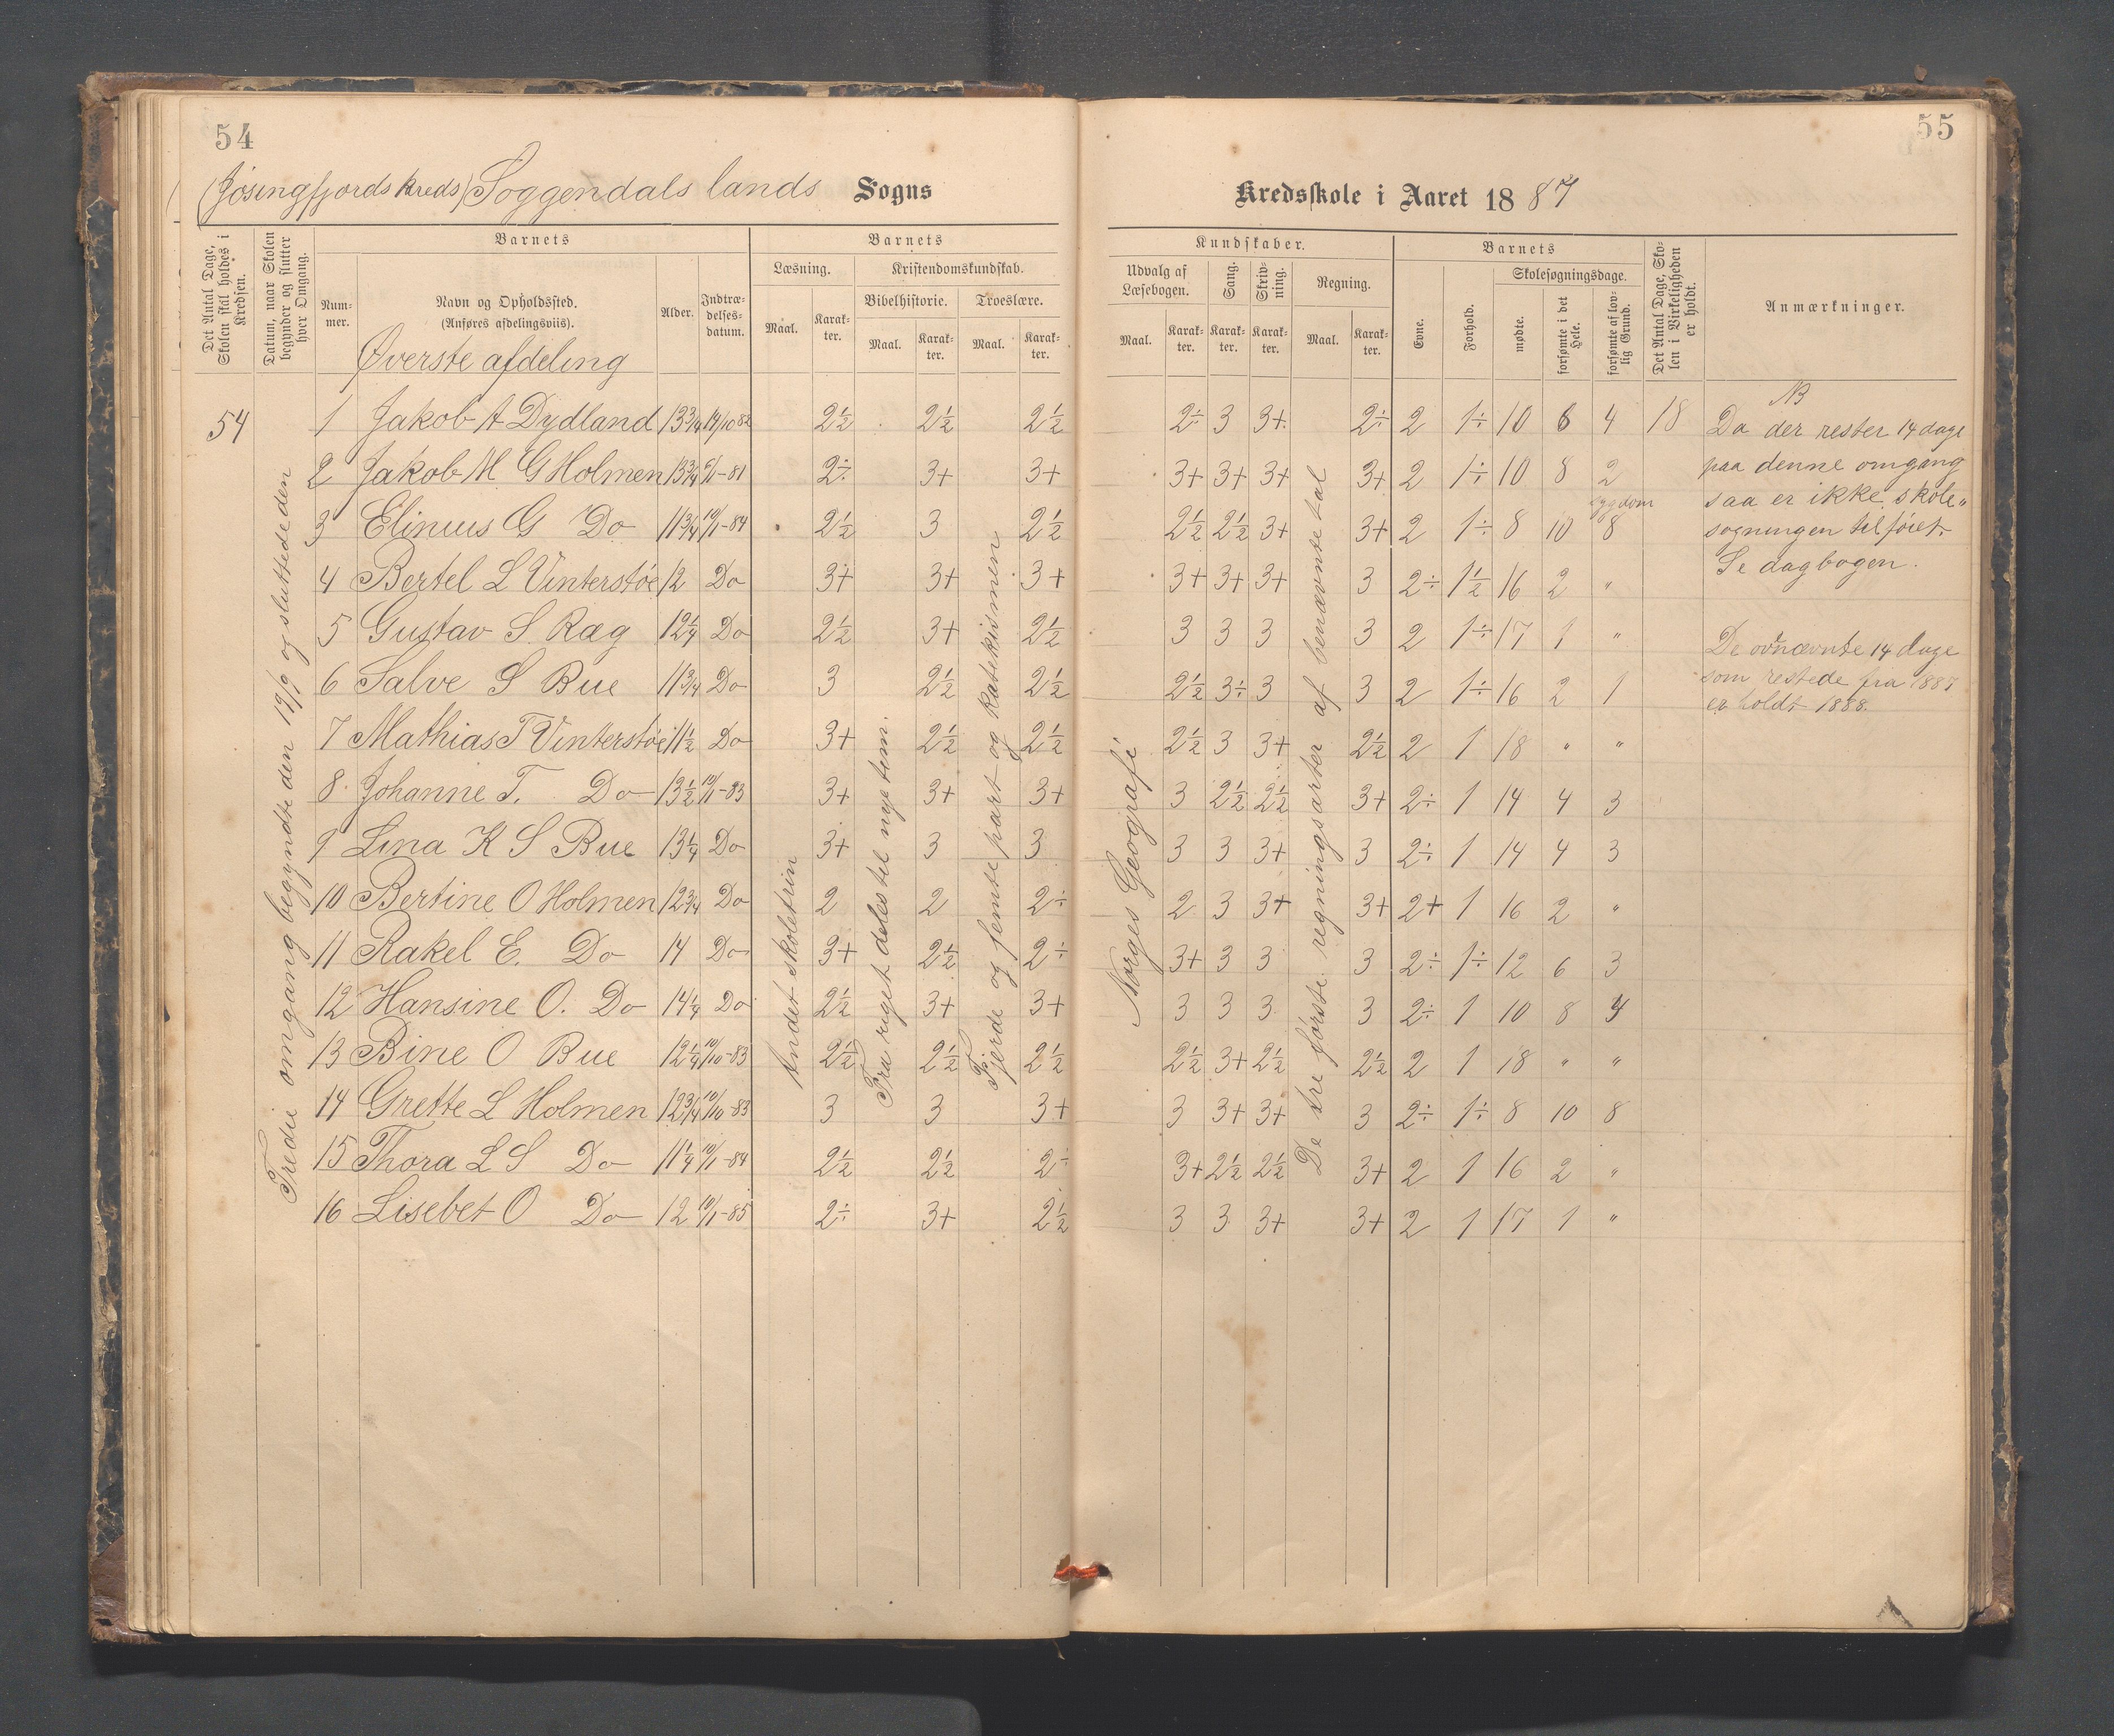 54
(Jøsingfjords kreds) Soggendals lands Sogns
Det Antal Dage, Skolen skal holdes i Kredsen.
Datum, naar Skolen begynder og slutter hver Omgang.
Barnets
Nummer.
Navn og Opholdssted.
(Anføres afdelingsviis).
Øverste afdeling
Alder.
Indtrædelsesdatum.
Barnets
Læsning.
Maal.
Karakter.
Kristendomskundskab.
Bibelhistorie.
Maal.
Karakter.
Troeslære.
Maal.
Karakter.
54
Tredie omgang begyndte den 19/9 og sluttede den
Andet skoletrin
Fra riget deles til nye tem.
Fjerde og femte part og katekismen
1 Jakob A Dydland 13 3/4 14/10 82 2½ 2½ 2½
2 Jakob M G Holmen 13 3/4 9/1-81 2÷ 3+ 3+
3 Elinius G Do 11 3/4 10/1-84 2½ 3 2½
4 Bertel L Vinterstøe 12 Do 3+ 3+ 3+
5 Gustav S. Ræg 12¼ Do 2½ 3+ 2½
6 Salve S Bue 11 3/4 Do 3 2½ 2½
7 Mathias T Vinterstøe 11½ Do 3+ 2½ 2½
8 Johanne T. Do 13½ 10/1-83 3+ 3+ 3+
9 Lina K S Bue 13¼ Do 3+ 3 3
10 Bertine O Holmen 12 3/4 Do 2 2 2÷
11 Rakel E. Do 14 Do 3+ 2½ 2÷
12 Hansine O. Do 14¼ Do 2½ 3+ 3+
13 Bine O Bue 12¼ 10/10-83 2½ 2½ 2½
14 Grette L Holmen 12 3/4 10/10-83 3 3 3+
15 Thora L S Do 11¼ 10/1-84 2½ 2½ 2÷
16 Lisebet O Do 12 10/1-85 2÷ 3+ 2½
55
Kredsskole i Aaret 1887
Kundskaber.
Udvalg af Læsebogen.
Maal.
Karakter.
Sang.
Karakter.
Skrivning.
Karakter.
Regning.
Maal.
Karakter.
Barnets
Evne.
Forhold.
Skolesøgningsdage.
mødte.
forsømte i det Hele.
forsømte af lovlig Grund.
Det Antal Dage, Skolen i Virkeligheden er holdt.
Anmærkninger.
Norges Geografi
De tre første regningsarter af benævnte tal
2÷ 3 3+ 2÷ 2 1÷ 10 8 4 18
3+ 3+ 3+ 3+ 2 1÷ 10 8 2
sygdom
2½ 2½ 3+ 3+ 2 1÷ 8 10 8
3+ 3+ 3+ 3 2÷ 1½ 16 2 "
3 3 3 3 2 1÷ 17 1 "
2½ 3÷ 3 3 2 1÷ 16 2 1
2½ 3 3+ 2½ 2 1 18 " "
3 2½ 2½ 3+ 2÷ 1 14 4 3
3 3 3+ 3 2÷ 1 14 4 3
2 3 3+ 3+ 2+ 1 16 2 "
3+ 3 3 3 2÷ 1÷ 12 6 3
3 3 3 3 2÷ 1 10 8 4
2½ 3+ 2½ 2½ 2 1 18 " "
3 3+ 3+ 3 2÷ 1÷ 8 10 8
3+ 2½ 2½ 3+ 2 1 16 2 "
3 3 3+ 3+ 2 1 17 1 "
NB
Da der rester 14 dage
paa denne omgang
saa er ikke skole-
søgningen tilføiet.
Se dagbogen.
De ovnævnte 14 dage
som restede fra 1887
er holdt 1888.